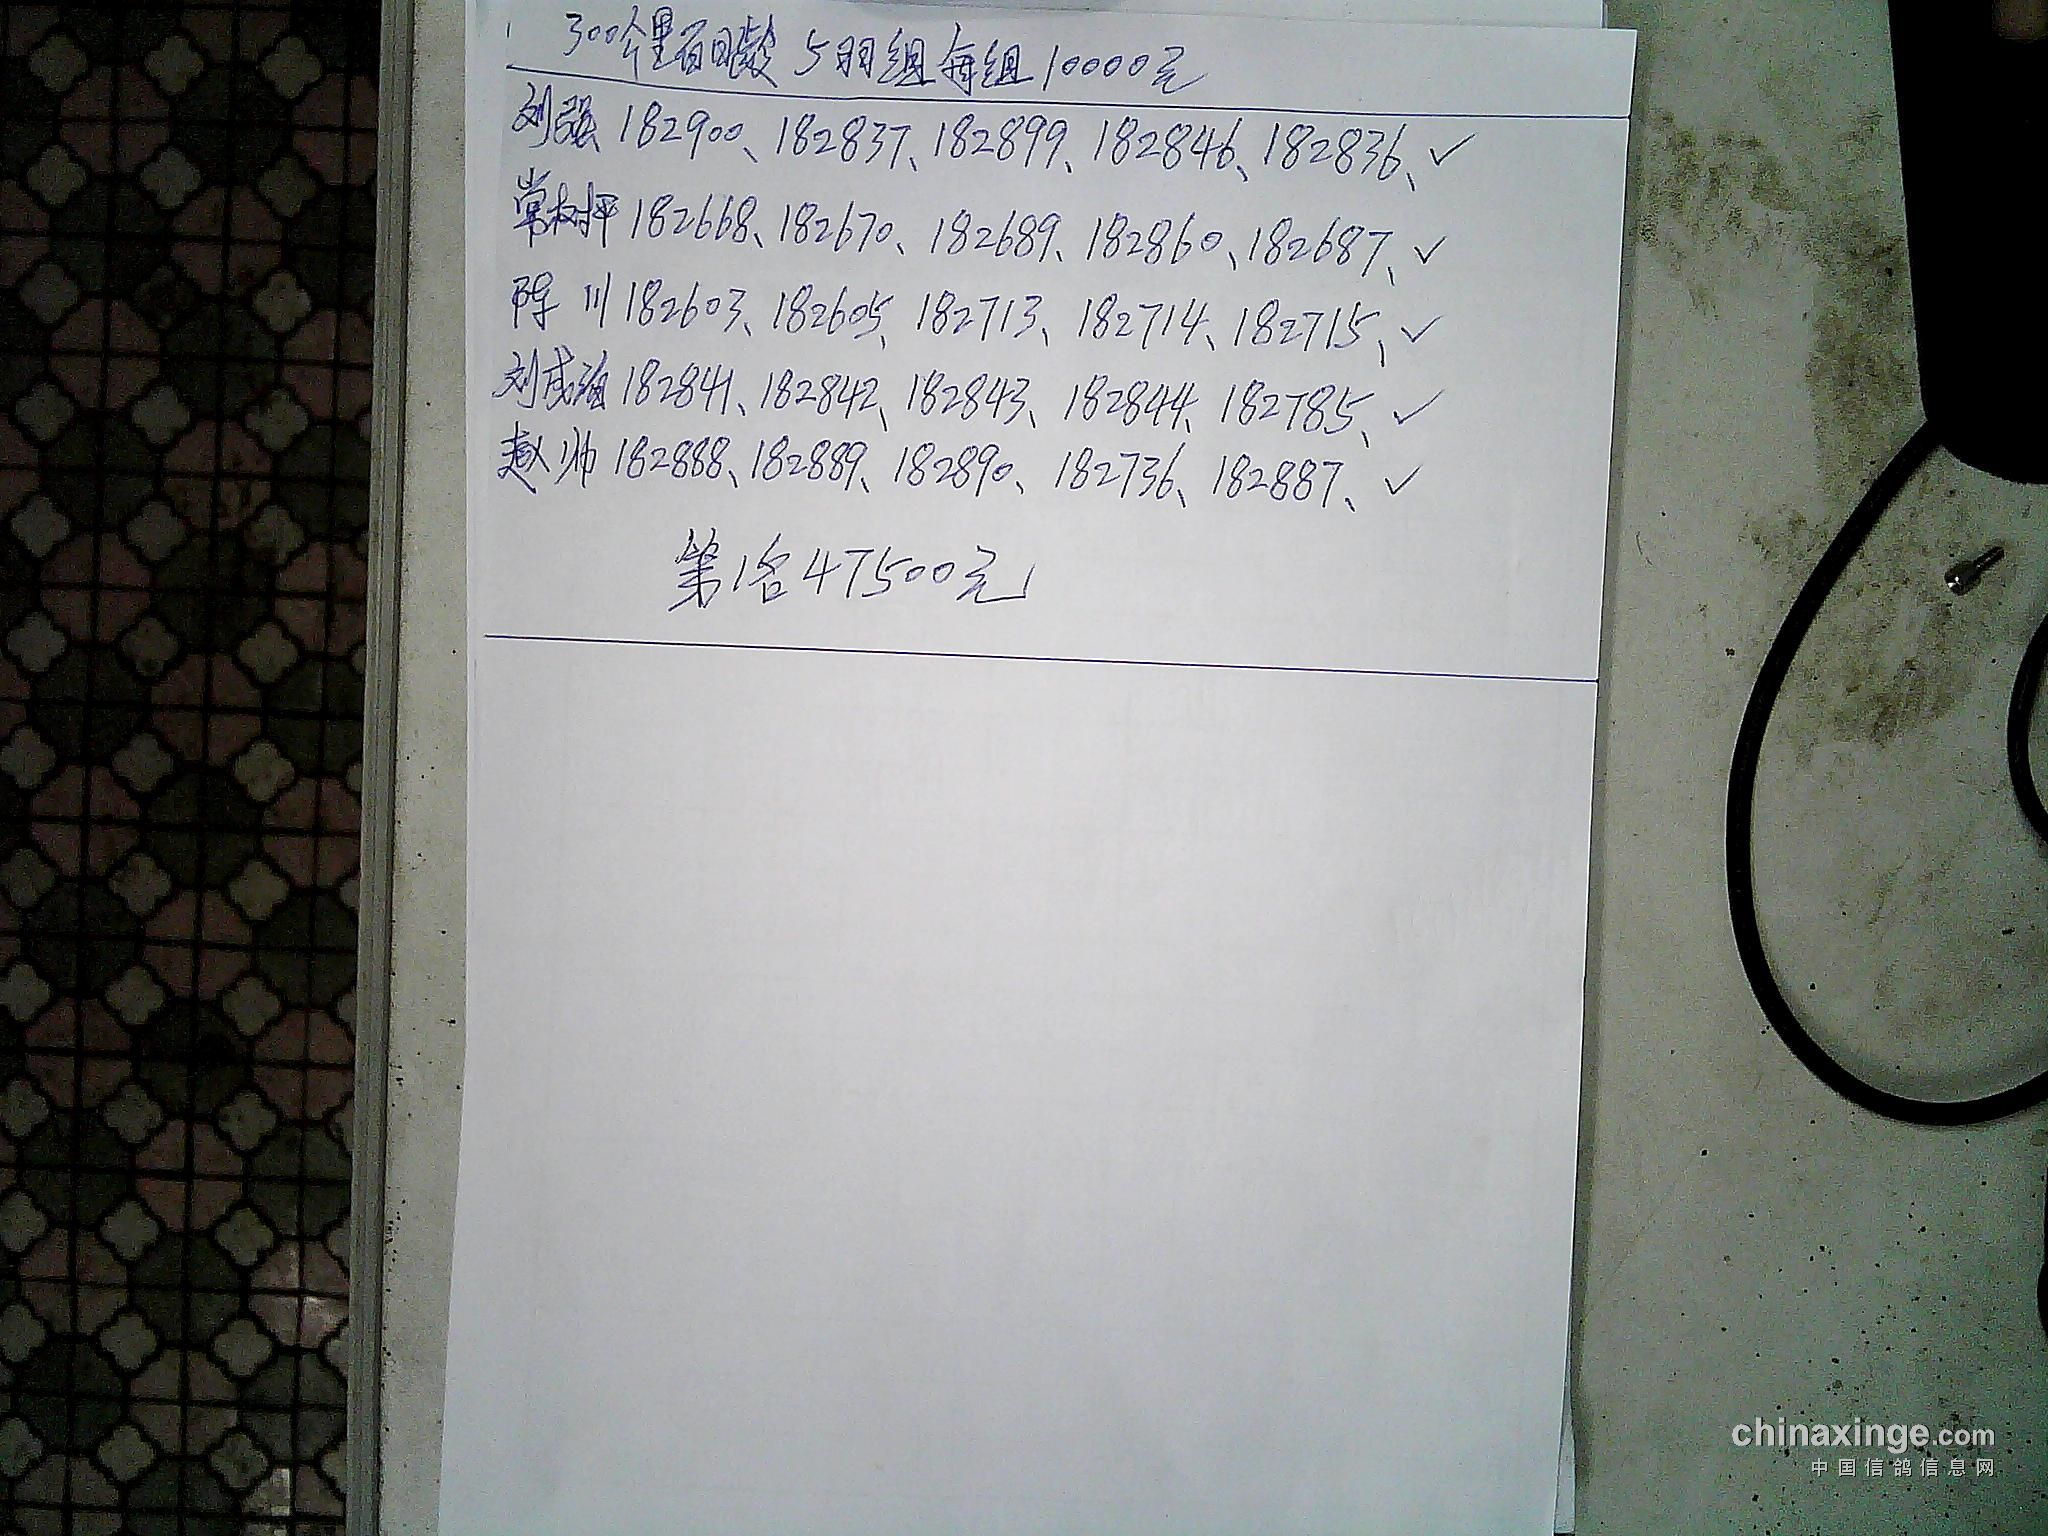 300公里百日龄 5羽组每组10000元
刘强 182900、182837、182899、182846、182836、✓
常树坪 182668、182670、182689、182860、182687、✓
陈川 182603、182605、182713、182714、182715、✓
刘成海 182841、182842、182843、182844、182785、✓
赵帅 182888、182889、182890、182736、182887、✓
第1名47500元
chinaxinge.com
中国信鸽信息网